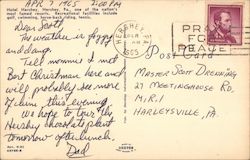 APR 7 1965 1:00 P.M.
Hotel Hershey, Hershey, Pa., one of the nation's
most famed resorts. Recreational facilities include
golf, swimming, horse-back riding, tennis.
Dear Scott,
The weather is foggy
and damp.
Tell mommie I met
Bart Christman here and
will probably see more
of him this evening.
We hope to tour the
Hershey chocolate plant
tomorrow after lunch.
Dad
HERSHEY
APR
1965
PRAY
FOR
PEACE
Post Card
MASTER SCOTT DRENNING
27 MEETINGHOUSE RD.
M.R. 1
HARLEYSVILLE, PA.
DEXTER